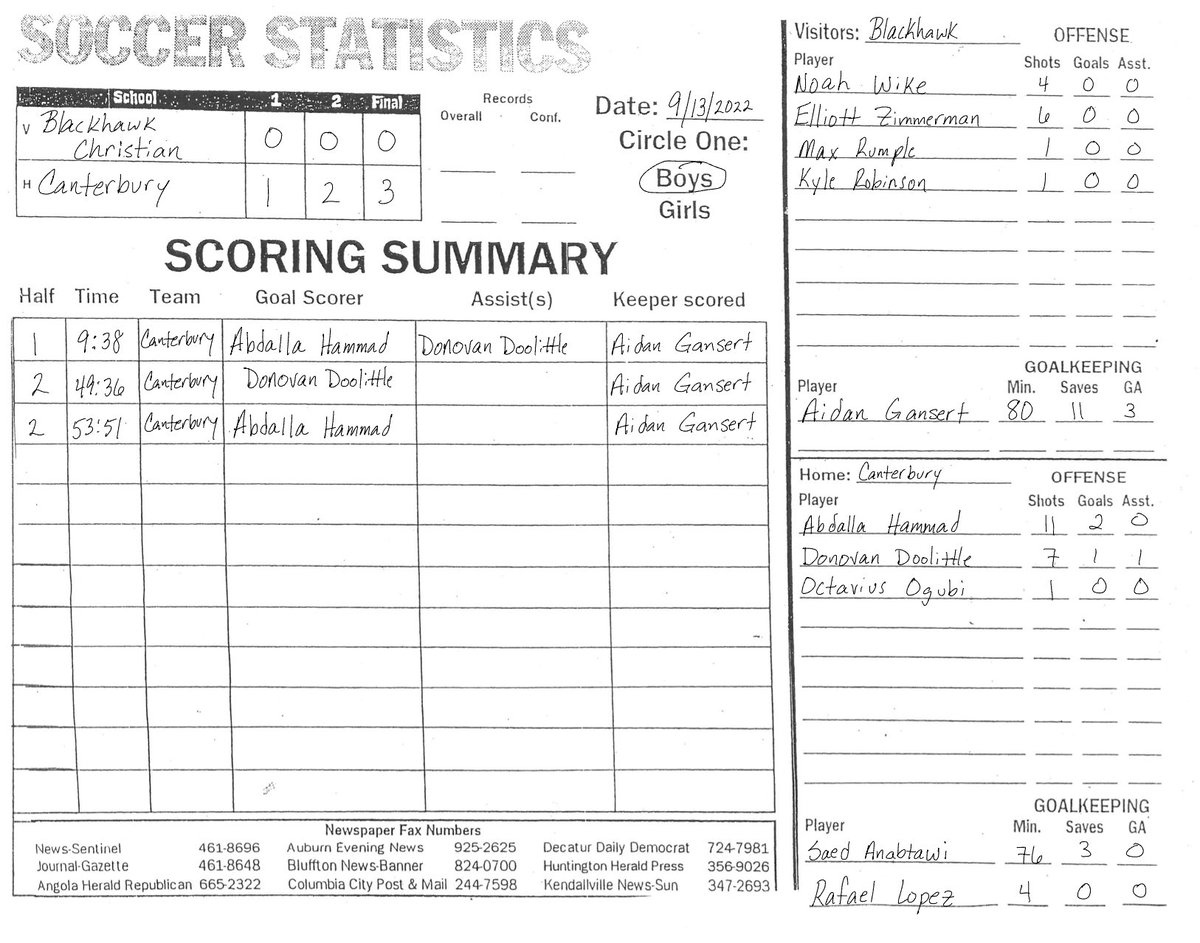 SOCCER STATISTICS
School 1 2 Final
V Blackhawk Christian 0 0 0
H Canterbury 1 2 3
Records
Overall Conf.
Date: 9/13/2022
Circle One:
Boys
Girls
SCORING SUMMARY
Half Time Team Goal Scorer Assist(s) Keeper scored
1 9:38 Canterbury Abdalla Hammad Donovan Doolittle Aidan Gansert
2 49:36 Canterbury Donovan Doolittle Aidan Gansert
2 53:51 Canterbury Abdalla Hammad Aidan Gansert
Newspaper Fax Numbers
News-Sentinel 461-8696 Auburn Evening News 925-2625 Decatur Daily Democrat 724-7981
Journal-Gazette 461-8648 Bluffton News-Banner 824-0700 Huntington Herald Press 356-9026
Angola Herald Republican 665-2322 Columbia City Post & Mail 244-7598 Kendallville News-Sun 347-2693
Visitors: Blackhawk OFFENSE
Player Shots Goals Asst.
Noah Wike 4 0 0
Elliott Zimmerman 6 0 0
Max Rumple 1 0 0
Kyle Robinson 1 0 0
GOALKEEPING
Player Min. Saves GA
Aidan Gansert 80 11 3
Home: Canterbury OFFENSE
Player Shots Goals Asst.
Abdalla Hammad 11 2 0
Donovan Doolittle 7 1 1
Octavius Ogubi 1 0 0
GOALKEEPING
Player Min. Saves GA
Saed Anabtawi 76 3 0
Rafael Lopez 4 0 0